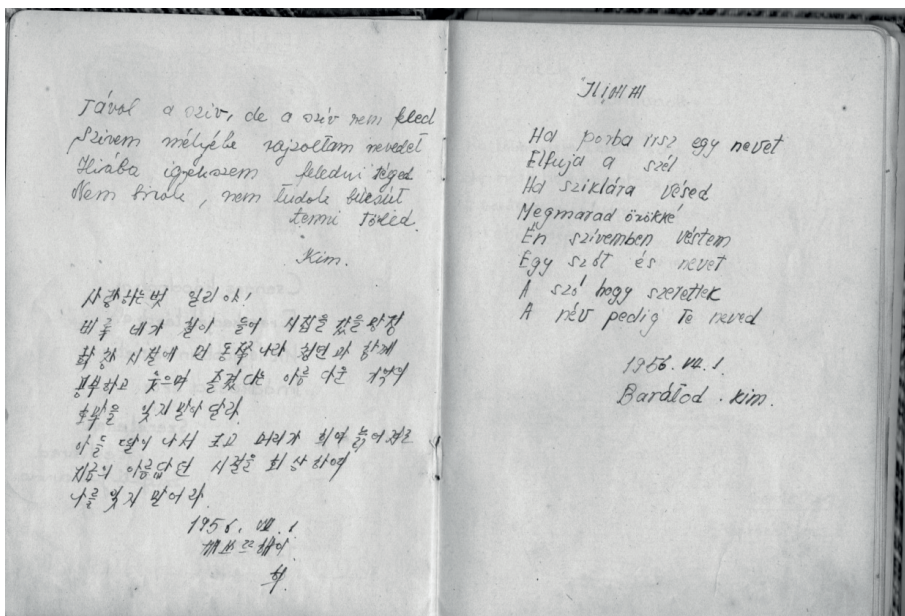 Távol a sziv, de a sziv nem feled
Szivem mélyébe rajzoltam nevedet
Hiába igyekszem feledni téged
Nem birok, nem tudok bucsút
tenni Töled.
Kim.
사랑하는벗 일리아!
비록 네가 젊어 들어 시집을 갔을망정
학창 시절에 먼 동쪽나라 청년과 함께
공부하고 웃으며 즐겼다는 아름다운 기억의
토막을 잊지말아 달라.
아들 딸이 나서 크고 머리가 희여 늙어지도
지금의 아름답던 시절을 회상하여
나를 잊지 말어라.
1956. VII. 1.
Ha porba irsz egy nevet
Elfujja a szél
Ha sziklára vésed
Megmarad örökké
Én szivemben véstem
Egy szót és nevet
A szó hogy szeretlek
A név pedig Te neved
1956. VII. 1.
Barátod. Kim.